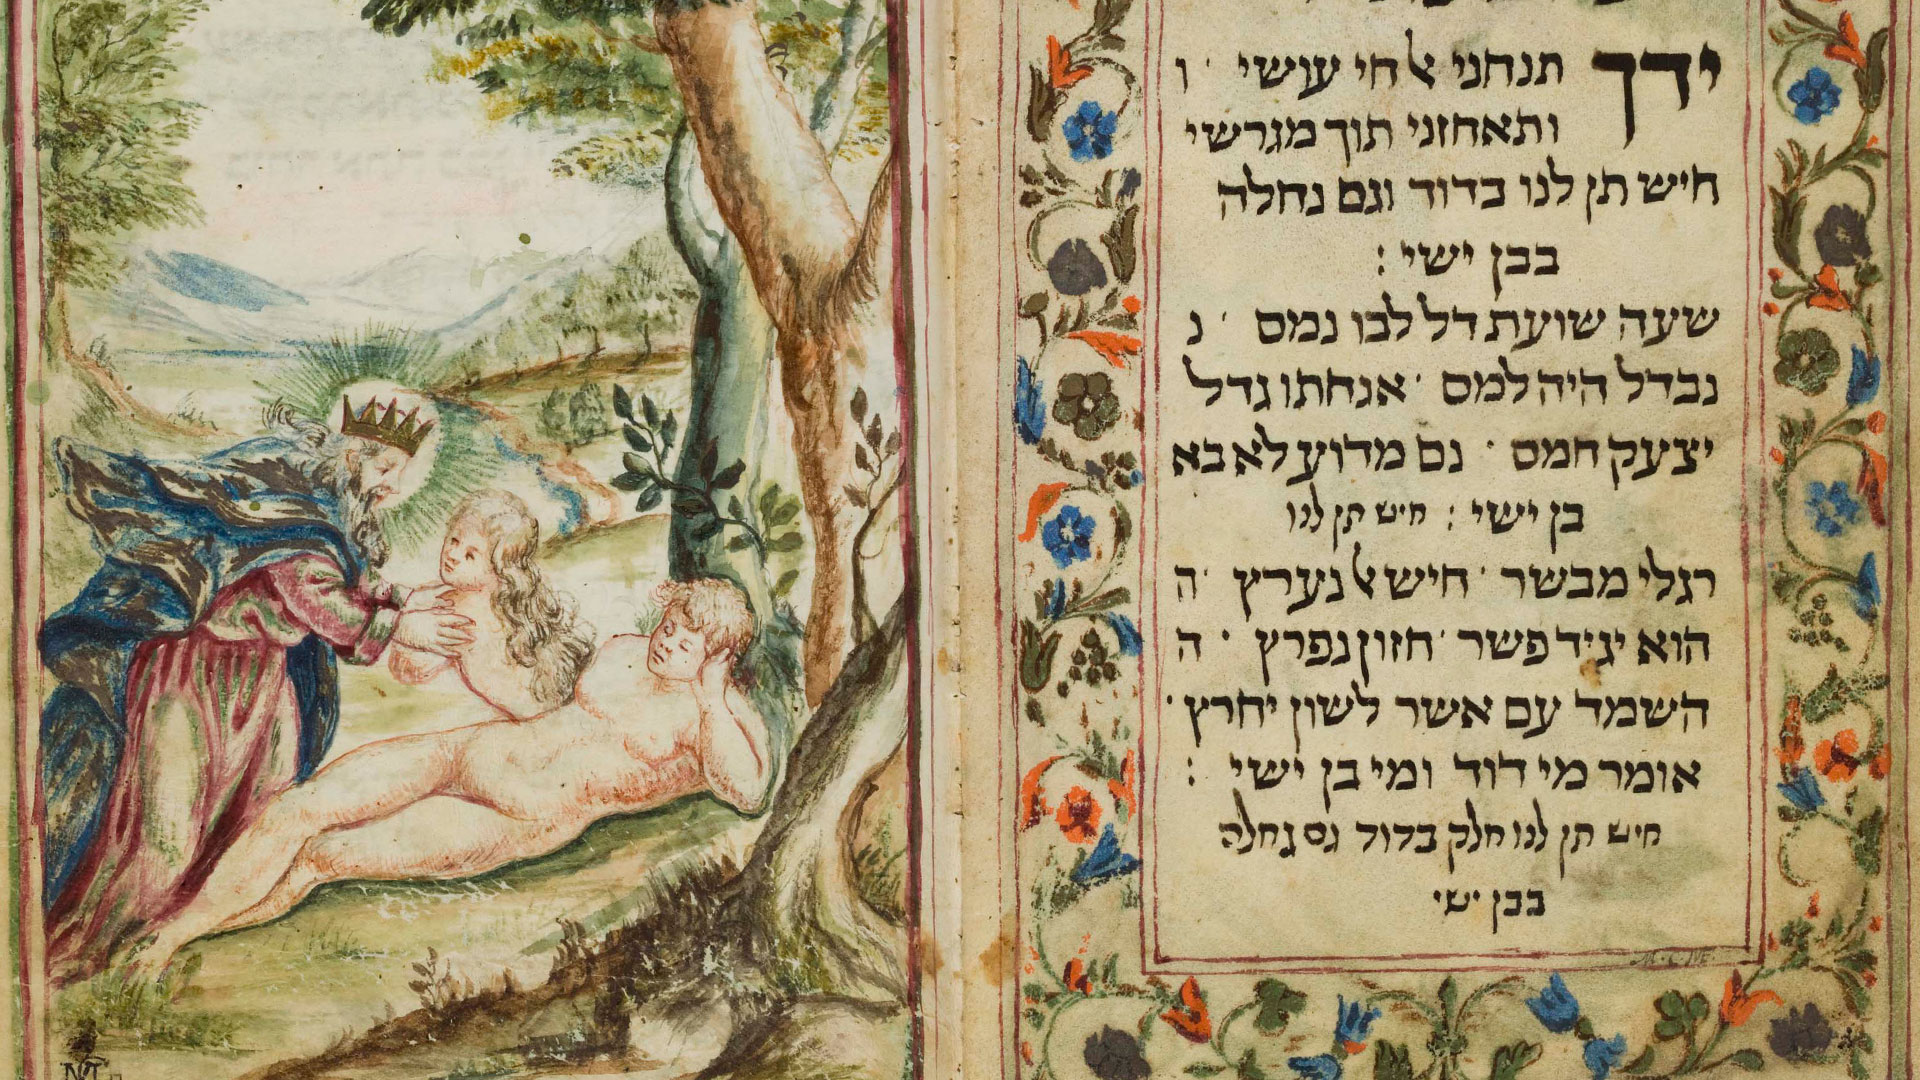 ידך תנחני אל חי עושי · ו
ותאחזני תוך מגרשי
חיש תן לנו בדוד וגם נחלה
בבן ישי :
שעה שועת דל לבו נמס · נ
נבדל היה למס · אנחתו גדל
יצעק חמס · גם מדוע לא בא
בן ישי : חיש תן לנו
רגלי מבשר · חיש אל נערץ · ה
הוא יגיד פשר · חזון נפרץ · ה
השמד עם אשר לשון יחרץ ·
אומר מי דוד ומי בן ישי :
חיש תן לנו חלק בדוד גם נחלה
בבן ישי